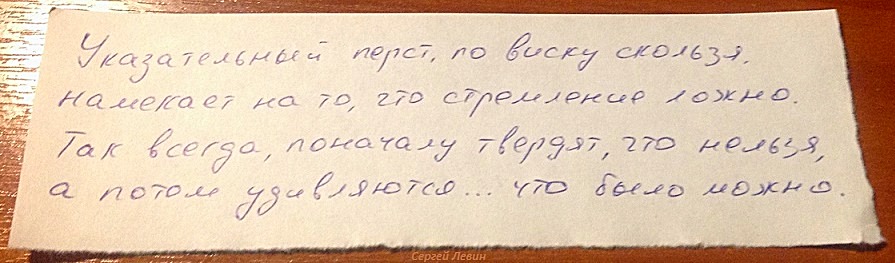 Указательный перст, по виску скользя,
намекает на то, что стремление ложно.
Так всегда, поначалу твердят, что нельзя,
а потом удивляются... что было можно.
Сергей Левин